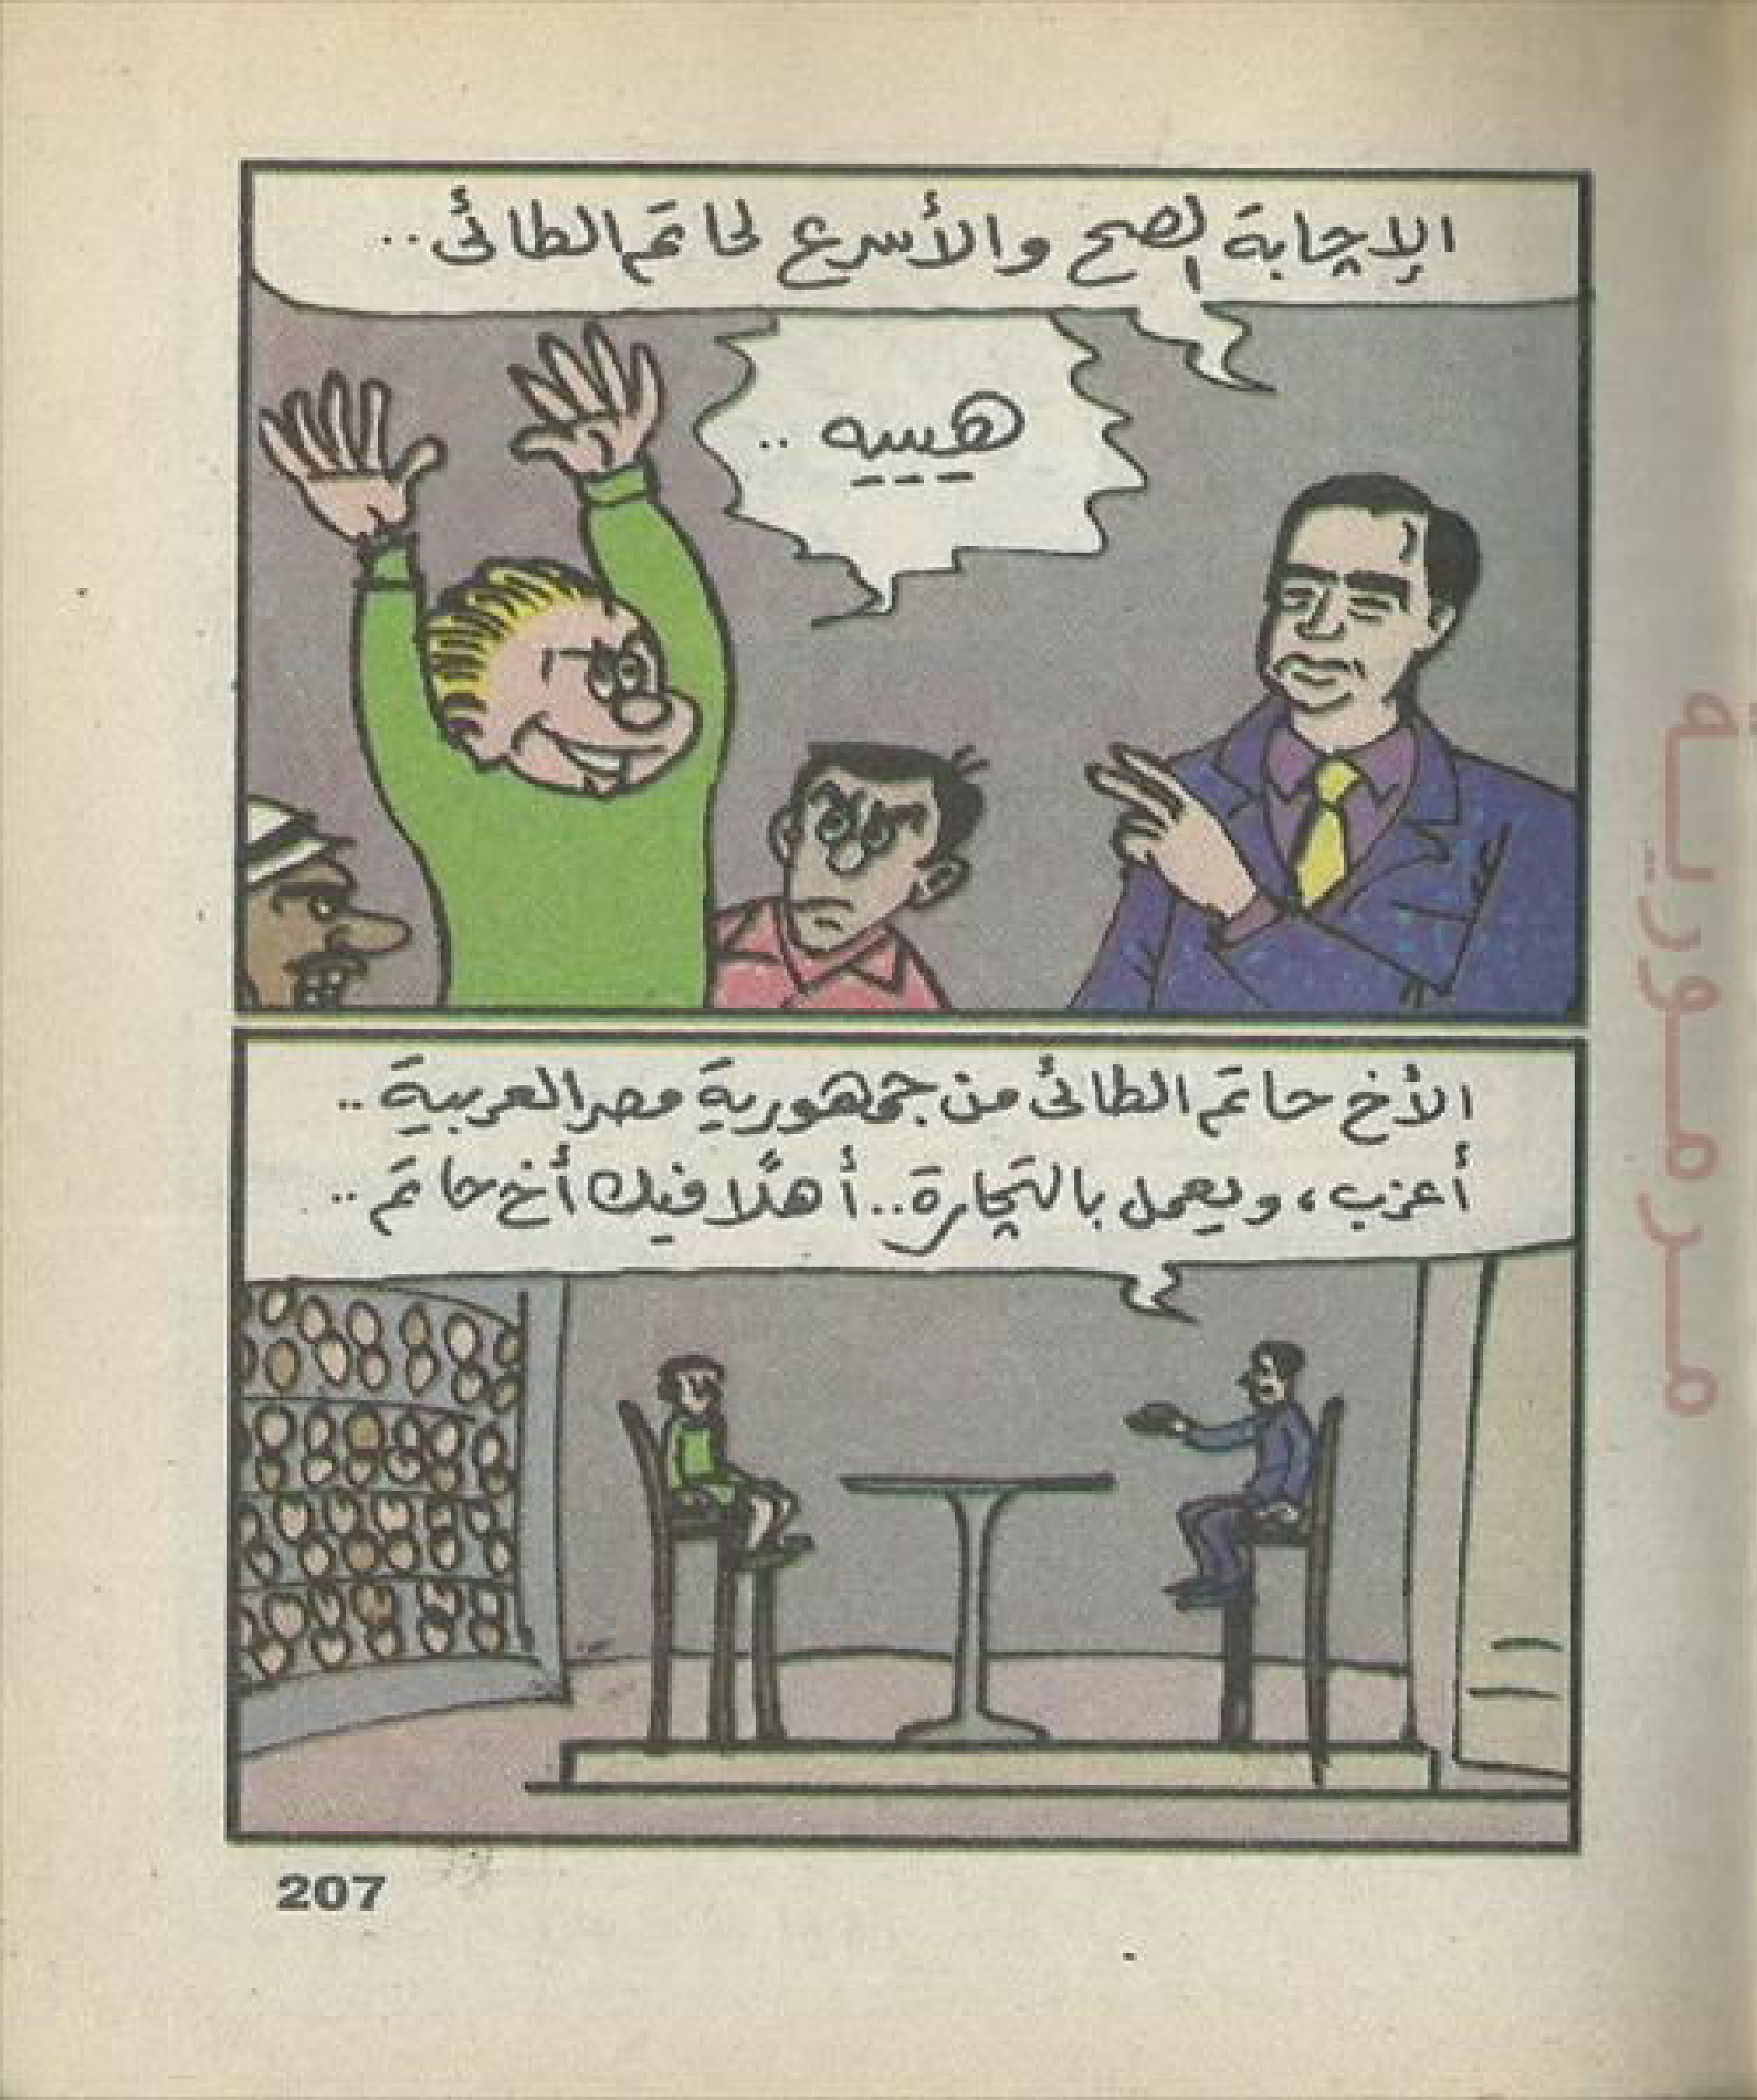 الإجابة الصح والأسرع لحاتم الطائى..
هيييه ..
الأخ حاتم الطائى من جمهورية مصر العربية ..
أعزب، ويعمل بالتجارة.. أهلًا فيك أخ حاتم ..
207
مرمورية